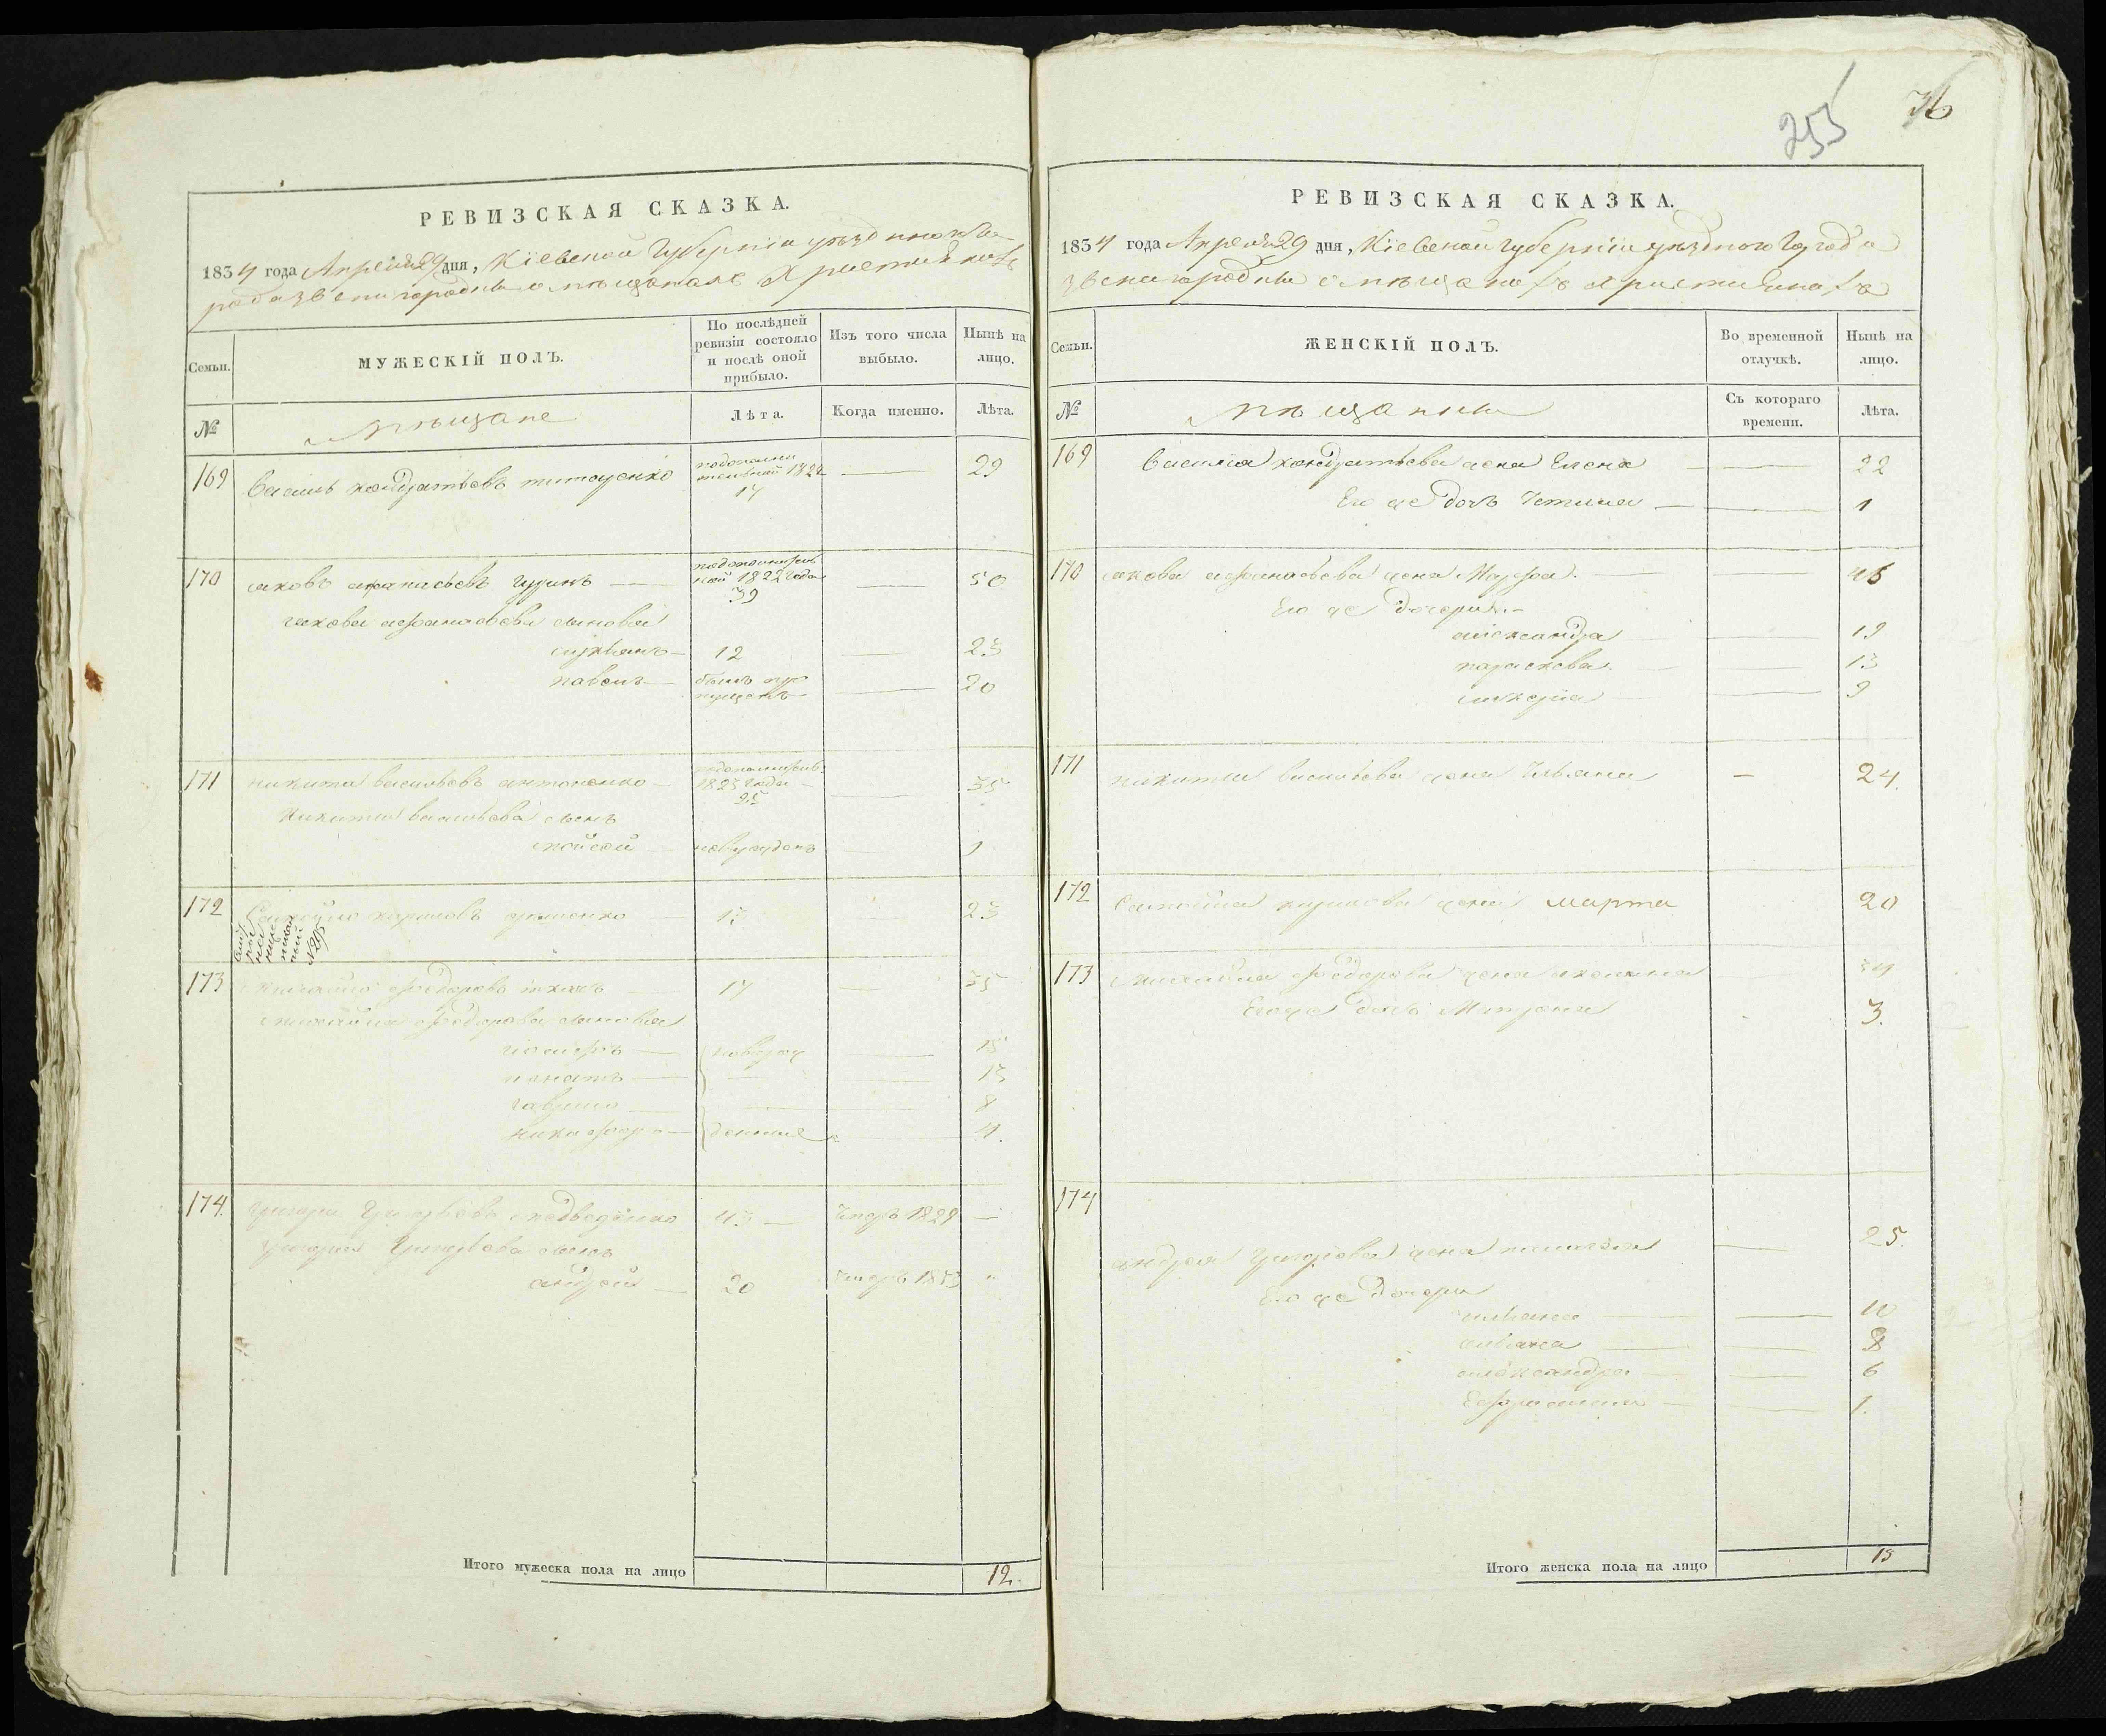 РЕВИЗСКАЯ СКАЗКА.
1834 года Апреля 29 дня, Кіевской Губерніи уезднаго го-
рода Звенигородки о мещанахъ Християнахъ
Семьи.
МУЖЕСКІЙ ПОЛЪ.
По послѣдней ревизіи состояло и послѣ оной прибыло.
Изъ того числа выбыло.
Нынѣ на лицо.
№
мѣщане
Лѣта.
Когда именно.
Лѣта.
169 Василь кондратьевъ титоренко 1822 17 — 29
170 Яковъ афанасьевъ гуринъ — 1822 года 39 — 50
Якова афанасьева сыновья
лукьянъ — 12 — 23
павелъ — былъ пропущенъ — 20
171 никита васильевъ антоненко — 1823 года 25 — 35
Никиты васильева сынъ
мойсей новорожденъ — 1
172 Самойло кириловъ 13 23
№ 205
173 Михайло феодоровъ ткачъ 17 — 35
михайла феодорова сыновья
— новорож — 15
игнатъ — — 13
гаврило — — 8
никифоръ — денные — 4.
174. григорий Григорьевъ медведенко 43 — Умеръ 1829 —
григорія Григорьева сынъ
андрей — 20 Умеръ 1833 "
Итого мужеска пола на лицо 12.
255
36
РЕВИЗСКАЯ СКАЗКА.
1834 года Апреля 29 дня, Кіевской губерніи уезднаго города
Звенигородки о мѣщанахъ християнахъ
Семьи.
ЖЕНСКІЙ ПОЛЪ.
Во временной отлучкѣ.
Нынѣ на лицо.
№
мѣщанки
Съ котораго времени.
Лѣта.
169 Василія кондратьева жена Елена — 22
Его же дочь Устина — 1
170 Якова афанасьева жена Марфа. — 45
Его же дочери. —
александра — 19
параскева — 13
лукерія — 9
171 никиты васильева жена Ульяна — 24.
172 Самойла кирилова жена марта 20
173 Михайла феодорова жена акилина 34
Его же дочь Матрона 3.
174
андрея григорьева жена — 25.
Его же дочери
ульяна — 10
— 8
александра — 6
Ефросинія — 1.
Итого женска пола на лицо 15